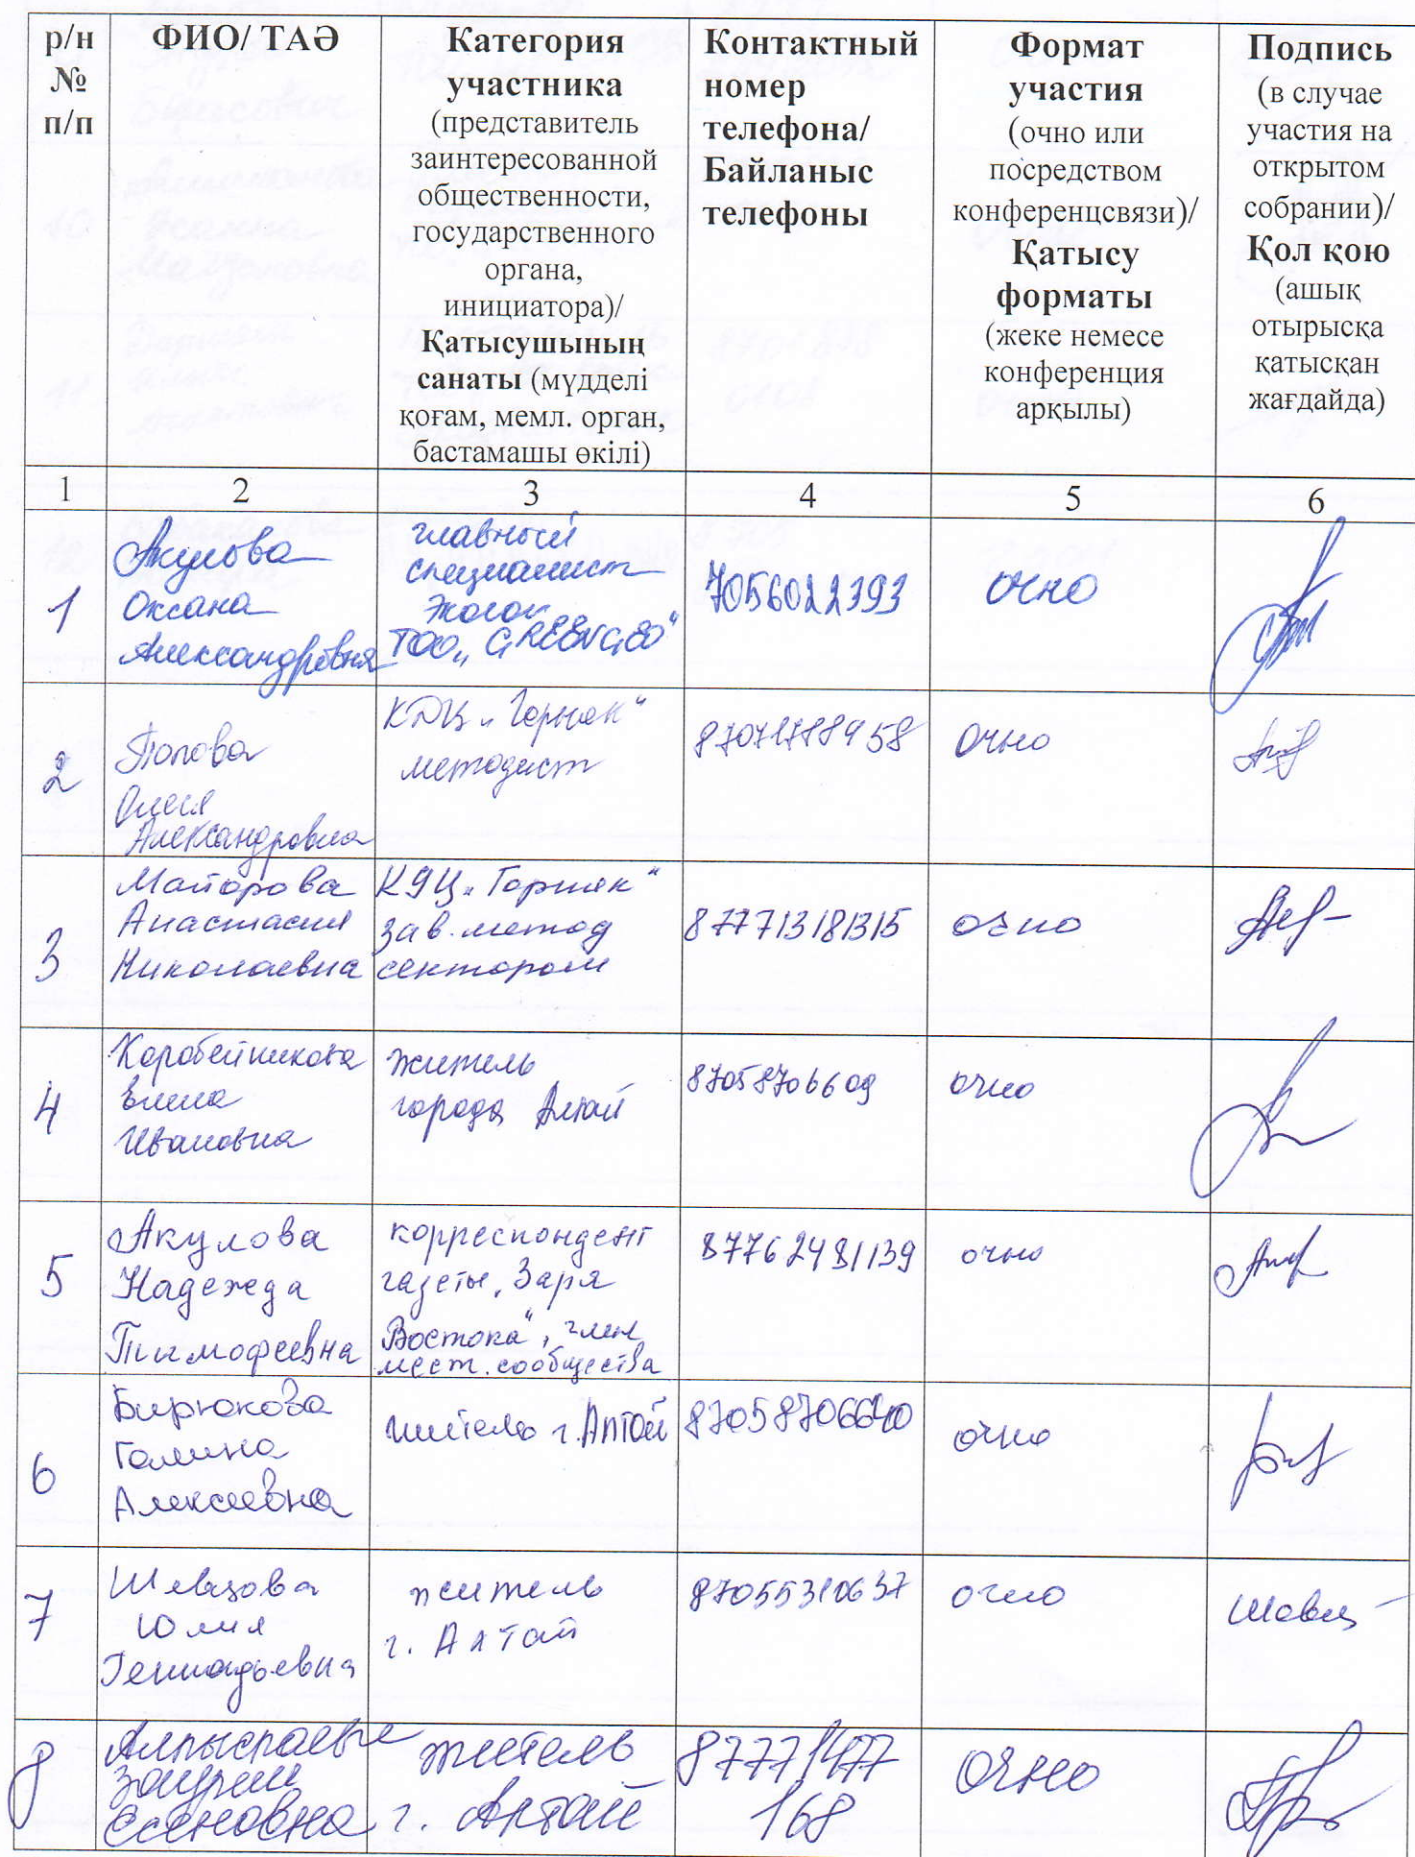 р/н № п/п
ФИО/ ТАӘ
Категория
участника
(представитель
заинтересованной
общественности,
государственного
органа,
инициатора)/
Қатысушының
санаты (мүдделі
қоғам, мемл. орган,
бастамашы өкілі)
Контактный
номер
телефона/
Байланыс
телефоны
Формат
участия
(очно или
посредством
конференцсвязи)/
Қатысу
форматы
(жеке немесе
конференция
арқылы)
Подпись
(в случае
участия на
открытом
собрании)/
Қол қою
(ашық
отырысқа
қатысқан
жағдайда)
1 2 3 4 5 6
1
Акулова
Оксана
Александровна
главный
специалист
эколог
ТОО „GREENGEO"
7056022393
очно
2
Попова
Олеся
Александровна
КДЦ „Горняк"
методист
очно
3
Майорова
Анастасия
Николаевна
КДЦ „Горняк"
зав. метод
сектором
877713181315
очно
4
Коробейникова
Елена
Ивановна
житель
города Алтай
87058706609
очно
5
Акулова
Надежда
Тимофеевна
корреспондент
газеты „Заря
Востока", член
мест. сообщества
87762481139
очно
6
Бирюкова
Галина
Алексеевна
житель г. Алтай
87058706640
очно
7
Шевцова
Юлия
Геннадьевна
житель
г. Алтай
87055310637
очно
Шевц
8
Есеновна
житель
г. Алтай
87771477
168
очно